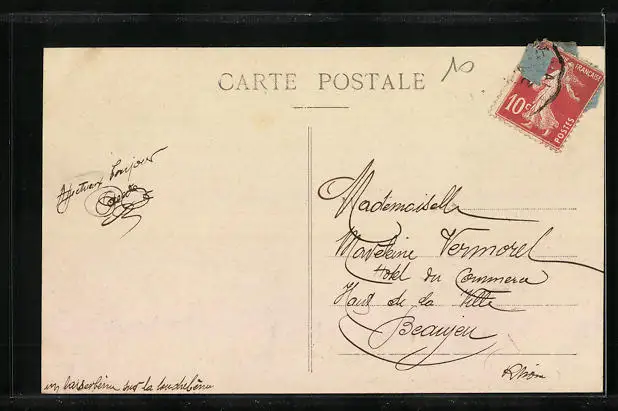 CARTE POSTALE
10
FRANÇAISE
10c
POSTES
Affectueux bonjour
Mademoiselle
Madeleine Vermorel
Hotel du Commerce
Haut de la Ville
Beaujeu
Rhône
sur la